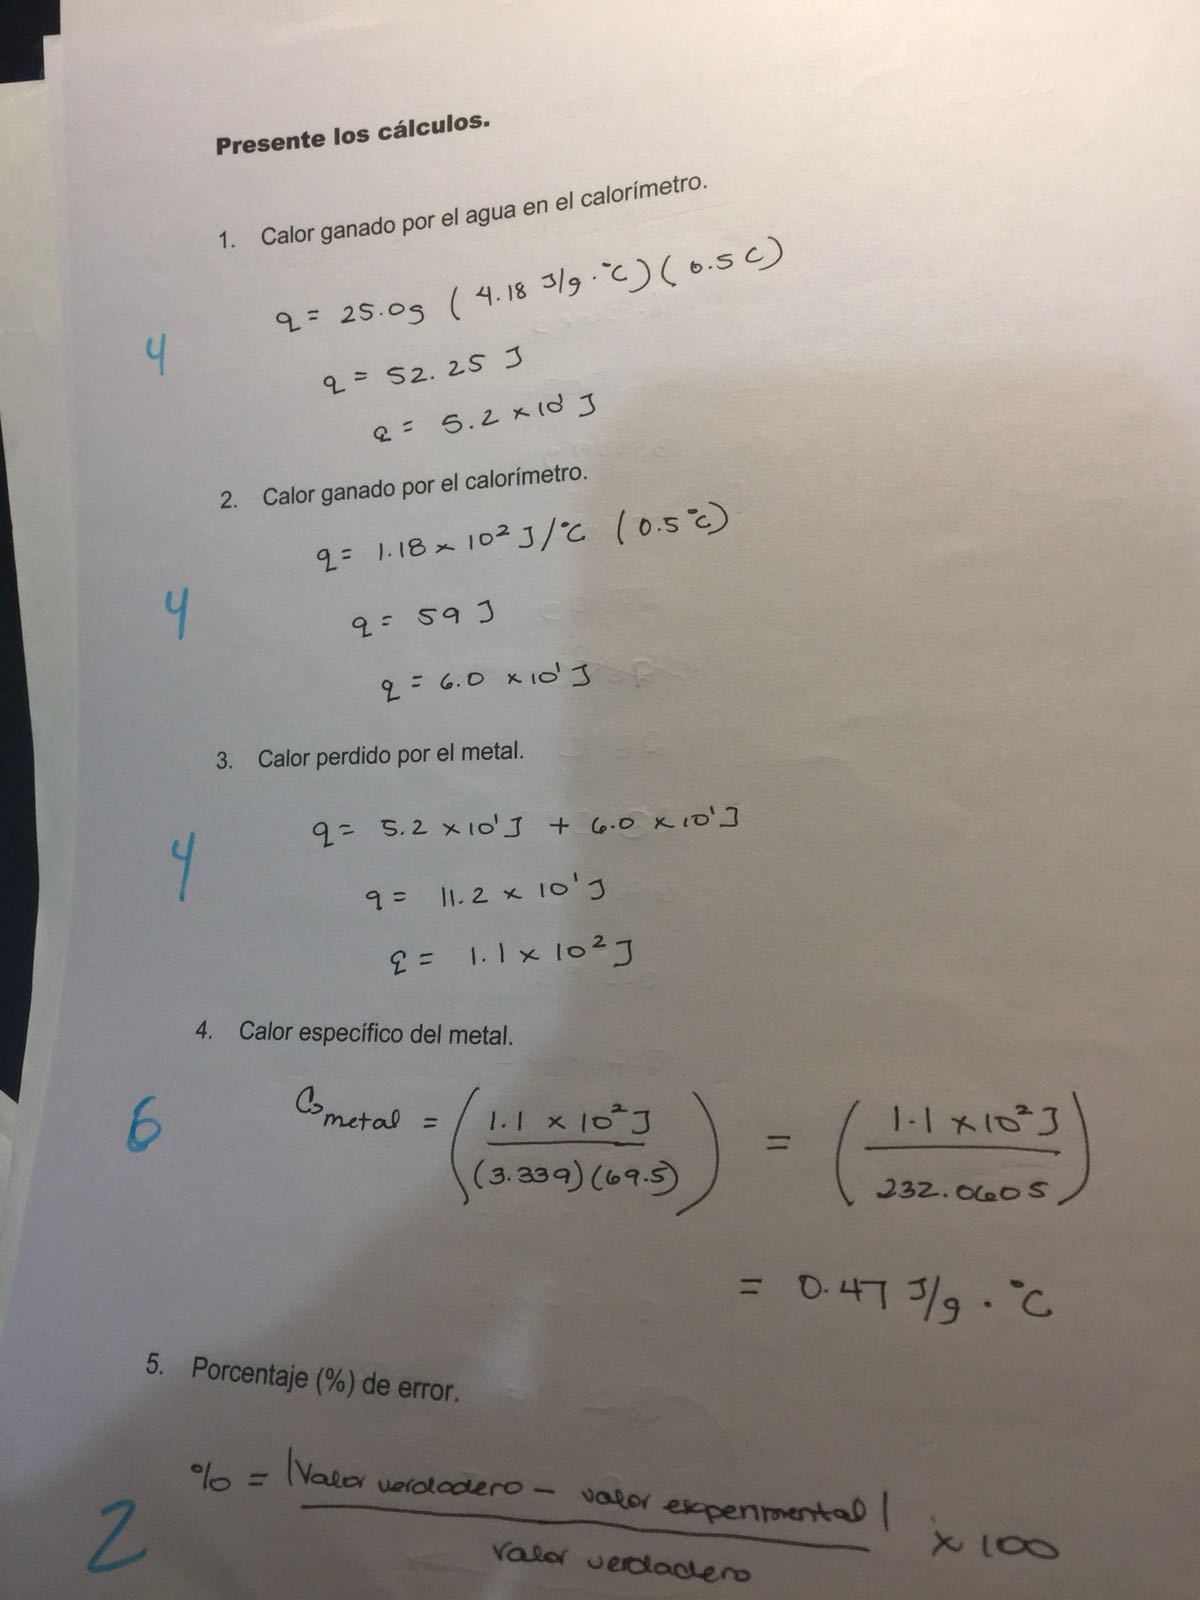 Presente los cálculos.
1. Calor ganado por el agua en el calorímetro.
q = 25.0g ( 4.18 J/g · °C) ( 0.5 C)
4
q = 52.25 J
q = 5.2 x 10¹ J
2. Calor ganado por el calorímetro.
q = 1.18 x 10² J/°C (0.5°C)
4
q = 59 J
q = 6.0 x 10¹ J
3. Calor perdido por el metal.
q = 5.2 x 10¹ J + 6.0 x 10¹ J
4
q = 11.2 x 10¹ J
q = 1.1 x 10² J
4. Calor específico del metal.
6
Cs metal = ( 1.1 x 10² J / (3.339)(69.5) ) = ( 1.1 x 10² J / 232.0605 )
= 0.47 J/g · °C
5. Porcentaje (%) de error.
% = |Valor verdadero - valor experimental| x 100
2
valor verdadero